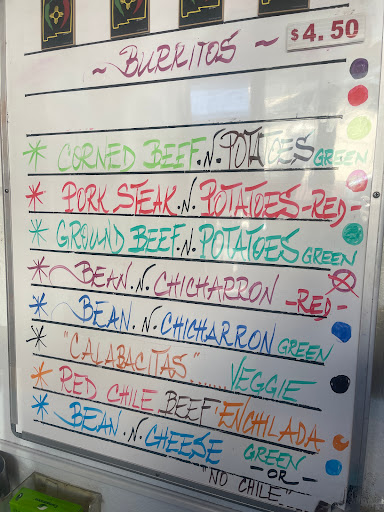 ~ BURRITOS ~ $4.50
* CORNED BEEF .N. POTATOES GREEN
* PORK STEAK .N. POTATOES -RED-
* GROUND BEEF .N. POTATOES GREEN
* BEAN .N. CHICHARRON -RED-
* BEAN .N. CHICHARRON GREEN
* "CALABACITAS" ...... VEGGIE
* RED CHILE BEEF 'ENCHILADA
* BEAN .N. CHEESE GREEN
-OR-
"NO CHILE"